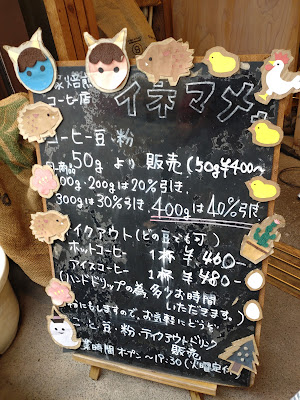 家焙煎
コーヒー店
イネマメ
コーヒー豆・粉
50gより販売(50g¥400〜
100g・200gは20%引き.
300gは30%引き.400gは40%引き.
テイクアウト(どの豆でも可)
ホットコーヒー 1杯¥460-
アイスコーヒー 1杯¥480-
(ハンドドリップの為、多少お時間
いただきます。)
もしますので、お気軽にどうぞ
コーヒー豆・粉・テイクアウトドリンク
販売
営業時間 オープン〜17:30(火曜定休